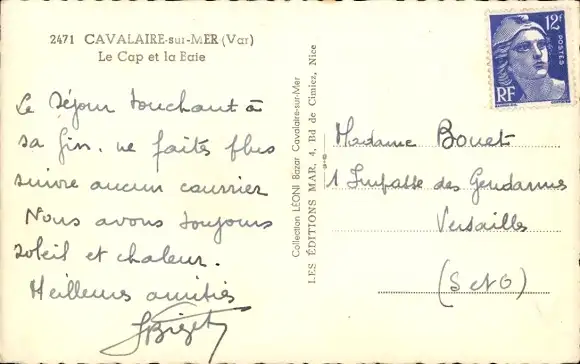 2471 CAVALAIRE-sur-MER (Var)
Le Cap et la Baie
Le séjour touchant à
sa fin, ne faites plus
suivre aucun courrier
Nous avons toujours
soleil et chaleur.
Meilleures amitiés
Collection LÉONI Bazar Cavalaire-sur-Mer
LES ÉDITIONS MAR, 4, Bd de Cimiez, Nice
12F
POSTES
RF
Madame Bouet
1 Impasse des Gendarmes
Versailles
(S et O)